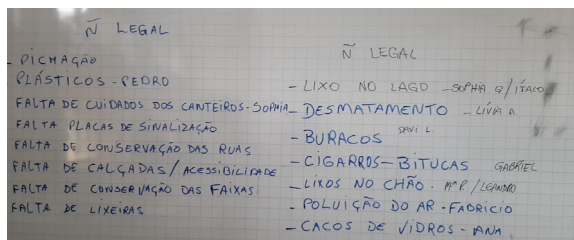 Ñ LEGAL
- PICHAÇÃO
PLÁSTICOS - PEDRO
FALTA DE CUIDADOS DOS CANTEIROS - SOPHIA
FALTA PLACAS DE SINALIZAÇÃO
FALTA DE CONSERVAÇÃO DAS RUAS
FALTA DE CALÇADAS / ACESSIBILIDADE
FALTA DE CONSERVAÇÃO DAS FAIXAS
FALTA DE LIXEIRAS
Ñ LEGAL
- LIXO NO LAGO - SOPHIA G / ÍTALO
- DESMATAMENTO - LÍVIA
- BURACOS DAVI L.
- CIGARROS - BITUCAS GABRIEL
- LIXOS NO CHÃO. Mª P. / LEANDRO
- POLUIÇÃO DO AR - FABRICIO
- CACOS DE VIDROS - ANA